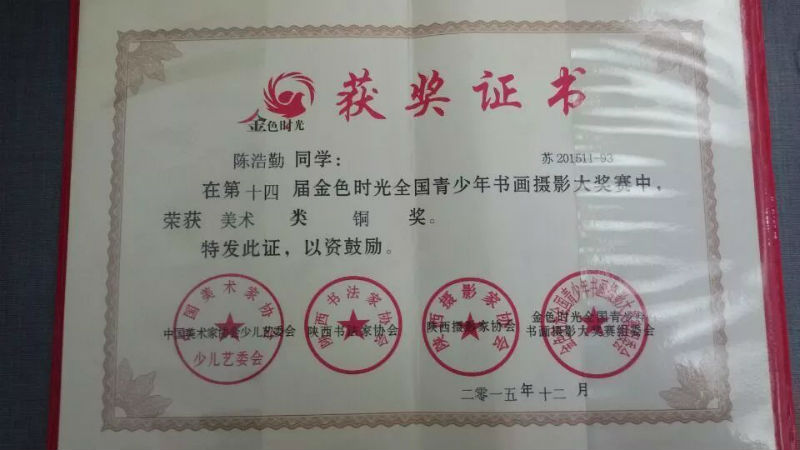 获奖证书
金色时光
陈浩勤 同学: 苏 201511-93
在第 十四 届金色时光全国青少年书画摄影大奖赛中,
荣获 美术 类 铜 奖。
特发此证,以资鼓励。
中国美术家协会少儿艺委会 陕西书法家协会 陕西摄影家协会 金色时光全国青少年
书画摄影大奖赛组委会
少儿艺委会
陕西书法家协会
陕西摄影家协会
二零一五年十二月